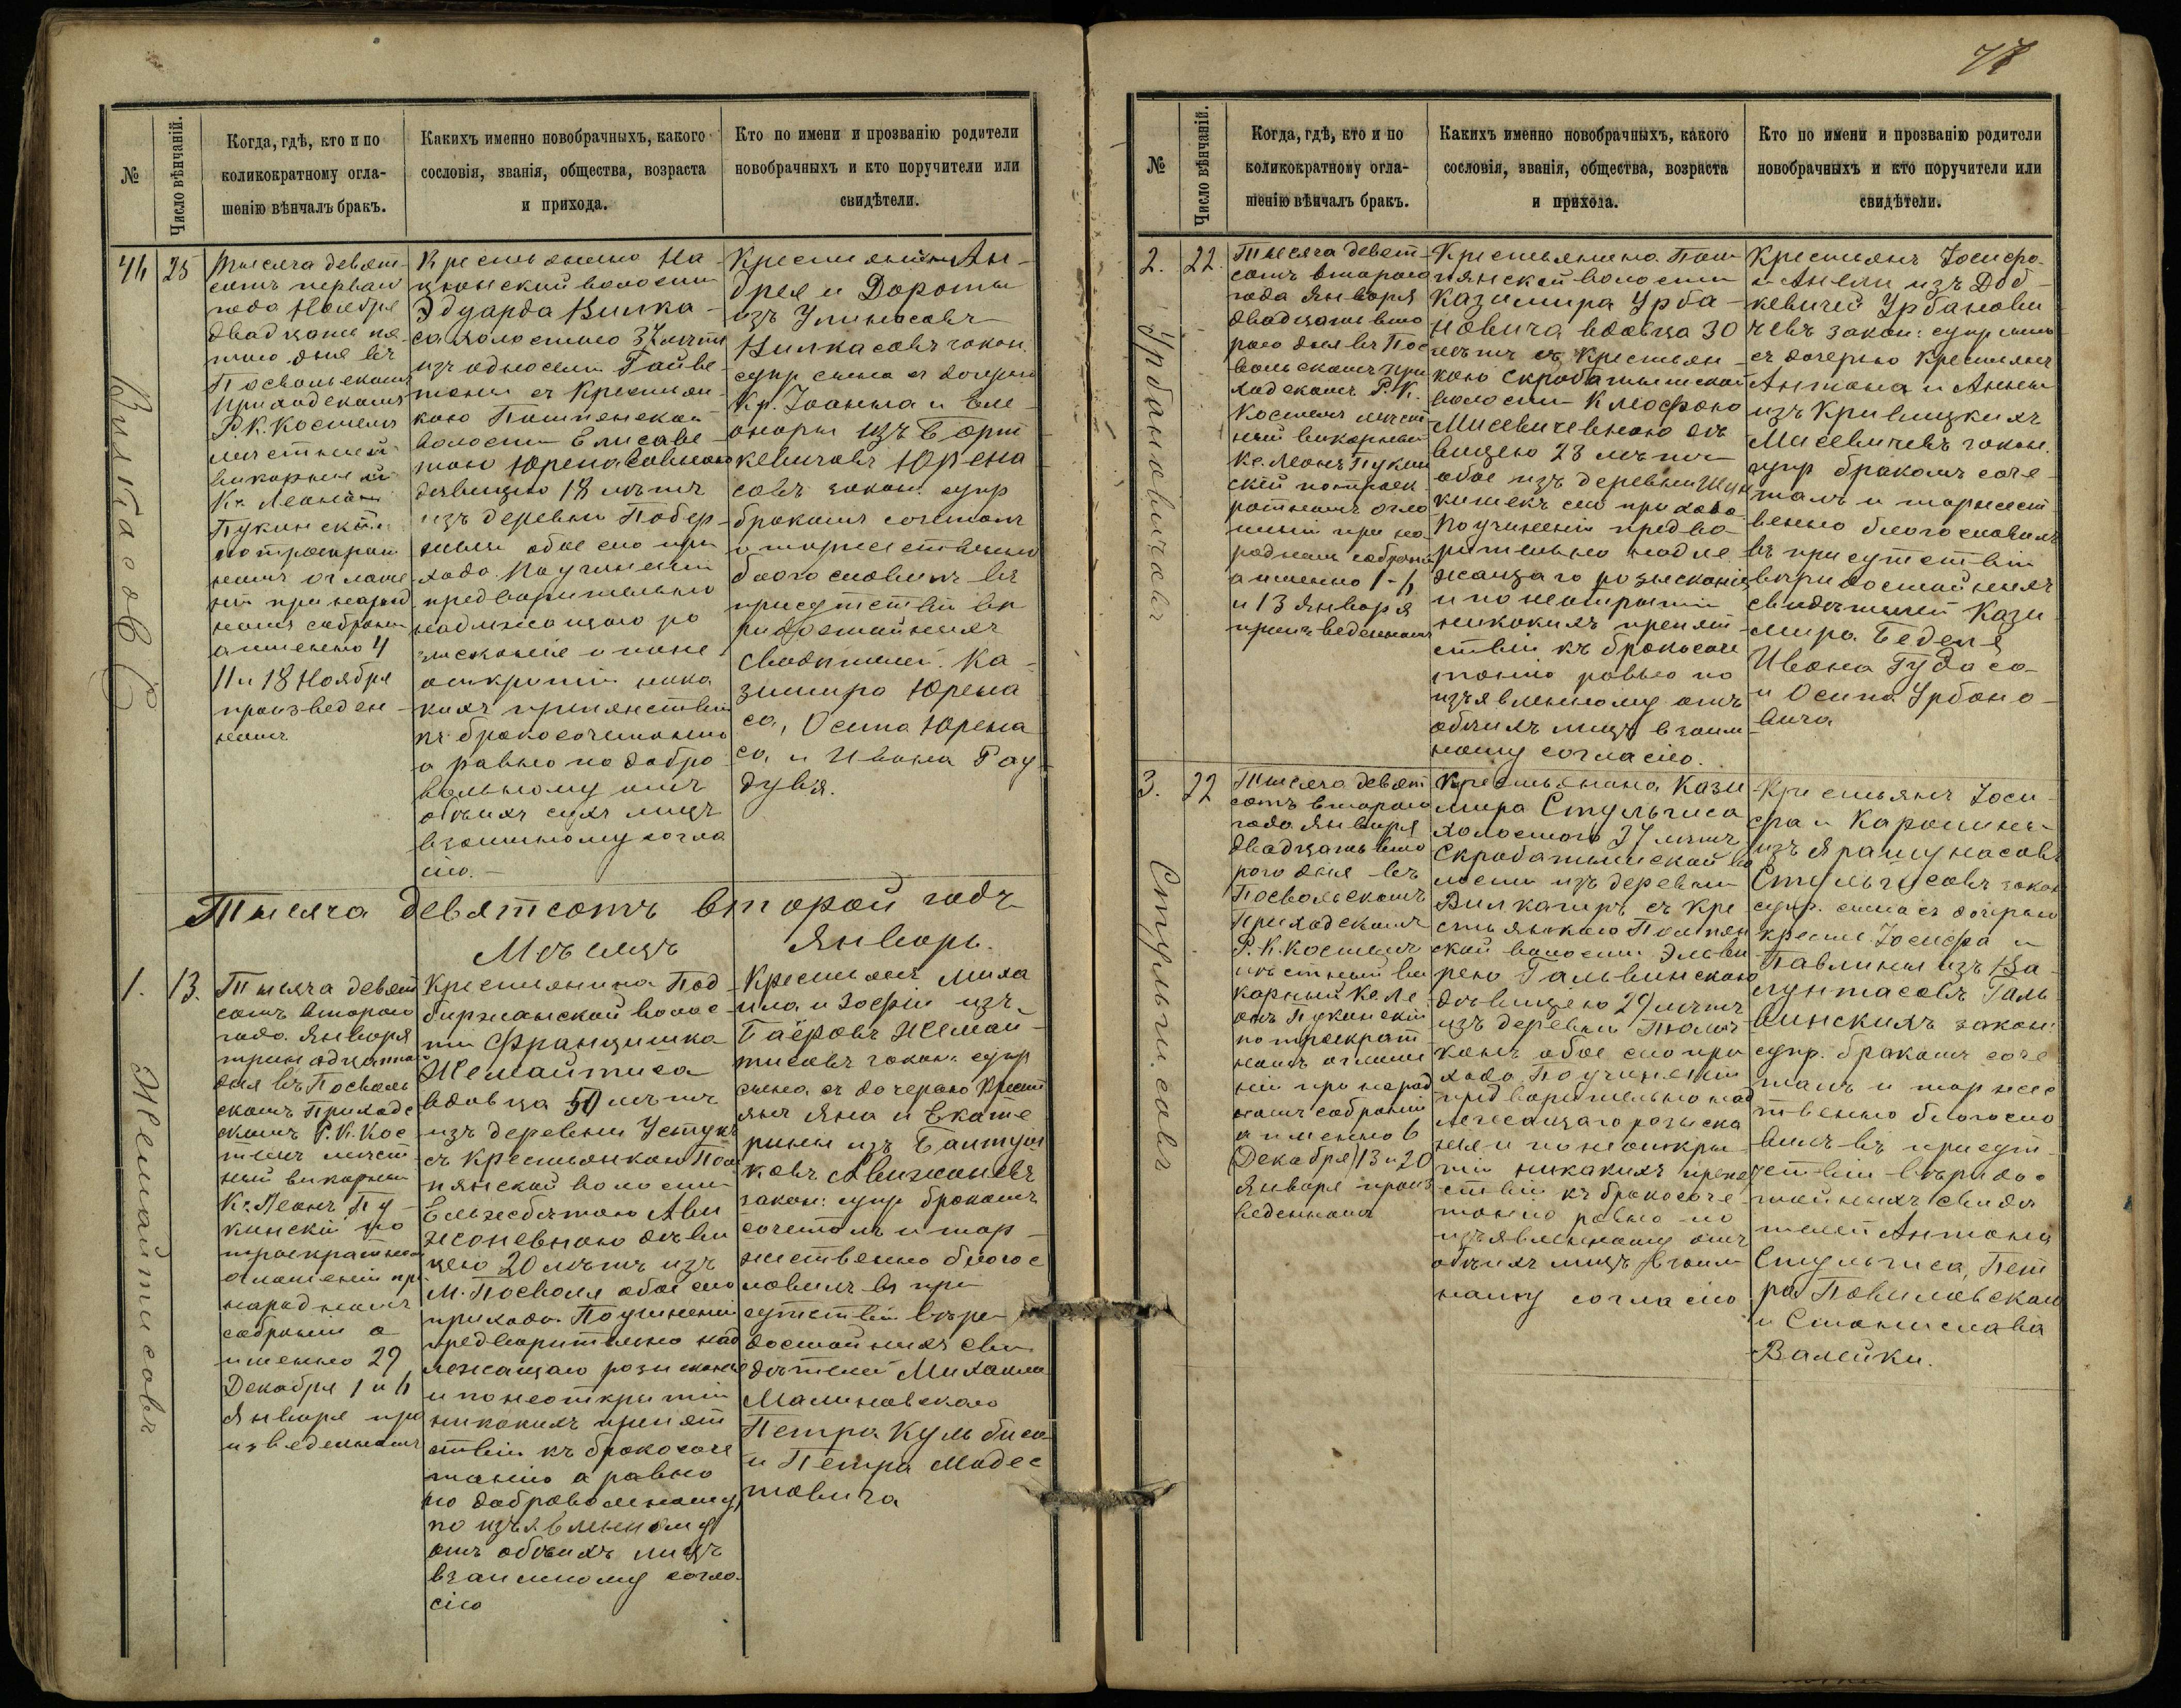 №
Число вѣнчаній.
Когда, гдѣ, кто и по
коликократному огла-
шенію вѣнчалъ бракъ.
Какихъ именно новобрачныхъ, какого
сословія, званія, общества, возраста
и прихода.
Кто по имени и прозванію родители
новобрачныхъ и кто поручители или
свидѣтели.
25
Вилкасовъ
Тысяча девят-
сотъ первого
года Ноября
двадцать пя-
того дня въ
Посвольскомъ
Приходскомъ
Р. К. Костелѣ
мѣстный
викарный
Кс. Леонъ
Пукинскій
по троекрат
номъ оглаше
ніи при народ
номъ собраніи
а именно 4
11 и 18 Ноября
произведен-
номъ
Крестьянина
волости
Эдуарда Вилка-
са холостого 37 лѣтъ
съ Крестьян-
кою
волости Елисаве-
тою Юренасовною
дѣвицею 18 лѣтъ
изъ деревни Побер-
обое сего при
хода. По учиненіи
предварительно
надлежащаго ро
зысканія и по не
открытіи ника
кихъ препятствій
къ бракосочетанію
а равно по добро
вольному отъ
обѣихъ сихъ лицъ
взаимному согла
сію.-
Крестьянъ Ан-
дрея и Дороты
изъ
Вилкасовъ закон.
супр сына съ дочерью
Кр. Іоанна и Еле-
оноры изъ Борт
кевичовъ Юрена
совъ закон. супр
бракомъ сочеталъ
и торжественно
благословилъ въ
присутствіи вѣ
ридостойныхъ
свидѣтелей. Ка-
зимира Юрена
са, Осипа Юрена
са, и Ивана Рау
дувя.
Тысяча девятсотъ второй годъ
Мѣсяцъ Январь.
1.
13.
Жемайтисовъ
Тысяча девят
сотъ второго
года Января
тринадцатаго
дня въ Посволь
скомъ Приходс
комъ Р. К. Кос
телѣ мѣст
ный викарный
Кс. Леонъ Пу-
кинскій по
троекратномъ
оглашеніи при
народномъ
собраніи а
именно 29
Декабря 1 и 6
Января про
изведенномъ
Крестьянина Под-
биржанской волос-
ти Францишка
Жемайтиса
вдовца 50 лѣтъ
изъ деревни Устукъ
съ Крестьянкою Пом
пянской волости
Ельжебѣтою Ави
жоневною дѣви
цею 20 лѣтъ изъ
М. Посволя обое сего
прихода. По учиненіи
предварительно над
лежащаго розысканія
и по неоткрытіи
никакихъ препят
ствій къ бракосоче
танію а равно
по добровольному,
по изъявленному
отъ обѣихъ лицъ
взаимному согла-
сію
Крестьянъ Миха
ила и Зофіи изъ
Гаёровъ Жемай-
тисовъ закон. супр
сына съ дочерью Крест
янъ Яна и Екате
рины изъ
ковъ Авижоневъ
закон: супр бракомъ
сочеталъ и тор-
жественно благос
ловилъ въ при
сутствіи вѣри-
достойныхъ сви-
дѣтелей Михаила
Малиновскаго
Петра Кульбиса
и Петра Модес
товича
№
Число вѣнчаній.
Когда, гдѣ, кто и по
коликократному огла-
шенію вѣнчалъ бракъ.
Какихъ именно новобрачныхъ, какого
сословія, званія, общества, возраста
и прихода.
Кто по имени и прозванію родители
новобрачныхъ и кто поручители или
свидѣтели.
2.
22.
Урбановичовъ
Тысяча девят
сотъ второго
года Января
двадцать вто
рого дня въ Пос
вольскомъ при
ходскомъ Р. К.
Костелѣ мѣст
ный викарный
Кс. Леонъ Пукин
скій по троек
ратномъ огла
шеніи при на
родномъ собраніи
а именно 1-6
и 13 Января
произведенномъ
Крестьянина Пом
пянской волости
Казимира Урба-
новича вдовца 30
лѣтъ съ Крестьян-
кою Скробатышской
волости Клеофою
Мисевичевною дѣ
вицею 23 лѣтъ
обое изъ деревни
сего прихода.
По учиненіи предва-
рительно надле
жащаго розысканія
и по неоткрытіи
никакихъ препят
ствій къ бракосоче
танію равно по
изъявленному отъ
обѣихъ лицъ взаим
ному согласію.
Крестьянъ Іосифа
и Анели изъ Доб-
кевичей Урбанови
чевъ закон: супр сына
съ дочерью Крестьянъ
Антона и Анны
изъ Кривицкихъ
Мисевичевъ закон.
супр бракомъ соче
талъ и торжест
венно благословилъ
въ присутствіи
вѣридостойныхъ
свидѣтелей Кази
мира Беделя
Ивана Гудаса
и Осипа Урбано-
вича
3.
22
Стульгисовъ
Тысяча девят
сотъ второго
года Января
двадцать вто
рого дня въ
Посвольскомъ
Приходскомъ
Р. К. Костелѣ
мѣстный ви
карный Кс. Ле
онъ Пукинскій
по троекрат
номъ оглаше
ніи при народ
номъ собраніи
а именно 6
(Декабря) 13 и 20
Января произ
веденномъ
Крестьянина Кази
мира Стульгиса
холостого 37 лѣтъ
Скробатышской во
лости изъ деревни
съ Кре
стьянкою Помпян
ской волости
Гальвинскою
дѣвицею 29 лѣтъ
изъ деревни
обое сего при
хода. По учиненіи
предварительно над
лежащаго розыска
нія и по неоткры
тіи никакихъ препят
ствій къ бракосоче
танію равно по
изъявленному отъ
обѣихъ лицъ взаим
ному согласію
Крестьянъ Іоси-
фа и Каролины
изъ Ярашунасовъ
Стульгисовъ закон
супр. сына съ дочерью
крестьян. Іосифа и
Павлины изъ Ва-
лунтасовъ Галь
винскихъ закон:
супр. бракомъ соче
талъ и торжес
твенно благосло
вилъ въ присут
ствіи вѣридос
тойныхъ свидѣ
телей Антона
Стульгиса, Пет
ра Повиловскаго
и Станислава
Валейки.